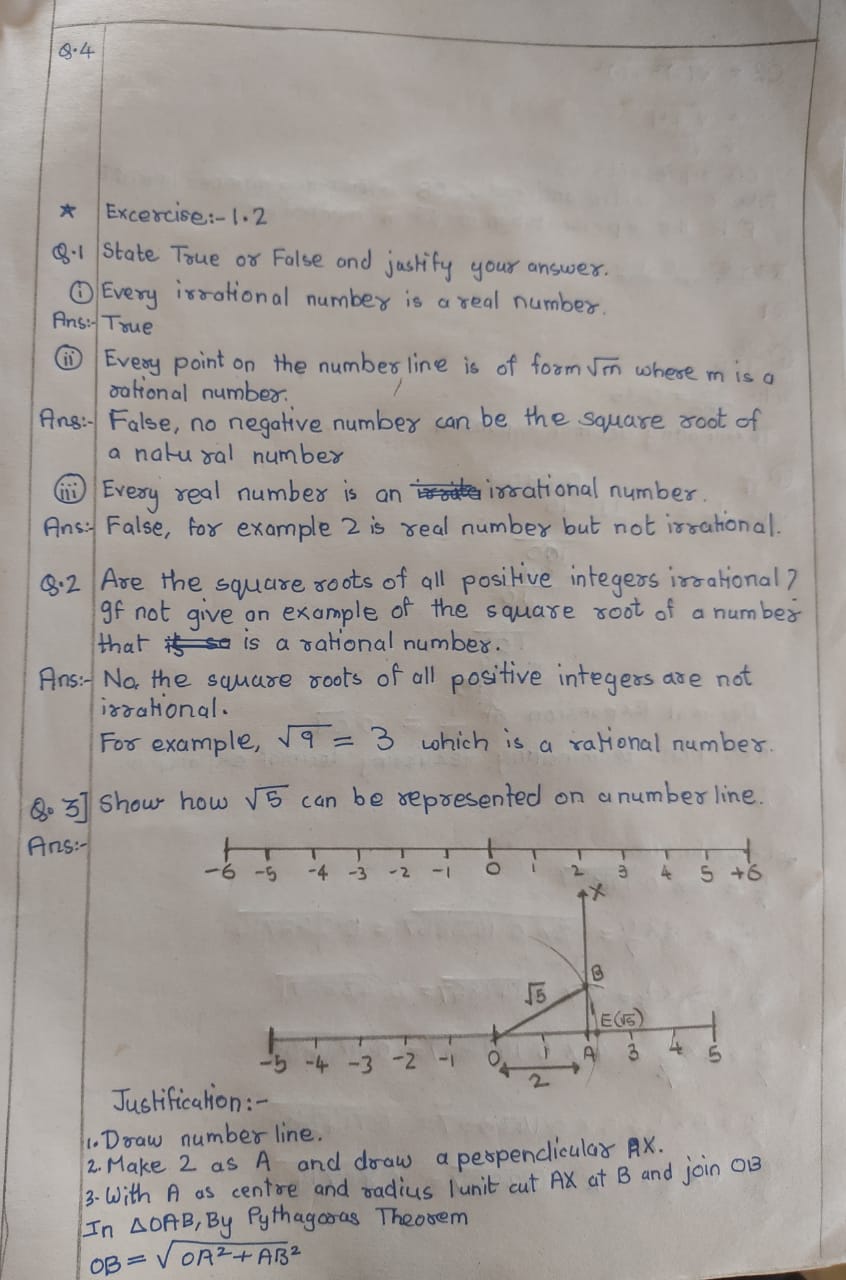 Q.4
* Excercise:- 1.2
Q.1 State True or False and justify your answer.
(i) Every irrational number is a real number.
Ans:- True
(ii) Every point on the number line is of form √m where m is a
rational number.
Ans:- False, no negative number can be the square root of
a natural number
(iii) Every real number is an irrational number.
Ans:- False, for example 2 is real number but not irrational.
Q.2 Are the square roots of all positive integers irrational?
If not give an example of the square root of a number
that is a rational number.
Ans:- No, the square roots of all positive integers are not
irrational.
For example, √9 = 3 which is a rational number.
Q. 3] Show how √5 can be represented on a number line.
Ans:-
-6 -5 -4 -3 -2 -1 0 1 2 3 4 5 +6
X
B
√5
E(√5)
-5 -4 -3 -2 -1 0 1 A 3 4 5
2
Justification:-
1. Draw number line.
2. Make 2 as A and draw a perpendicular AX.
3. With A as centre and radius 1 unit cut AX at B and join OB
In △OAB, By Pythagoras Theorem
OB = √OA²+AB²